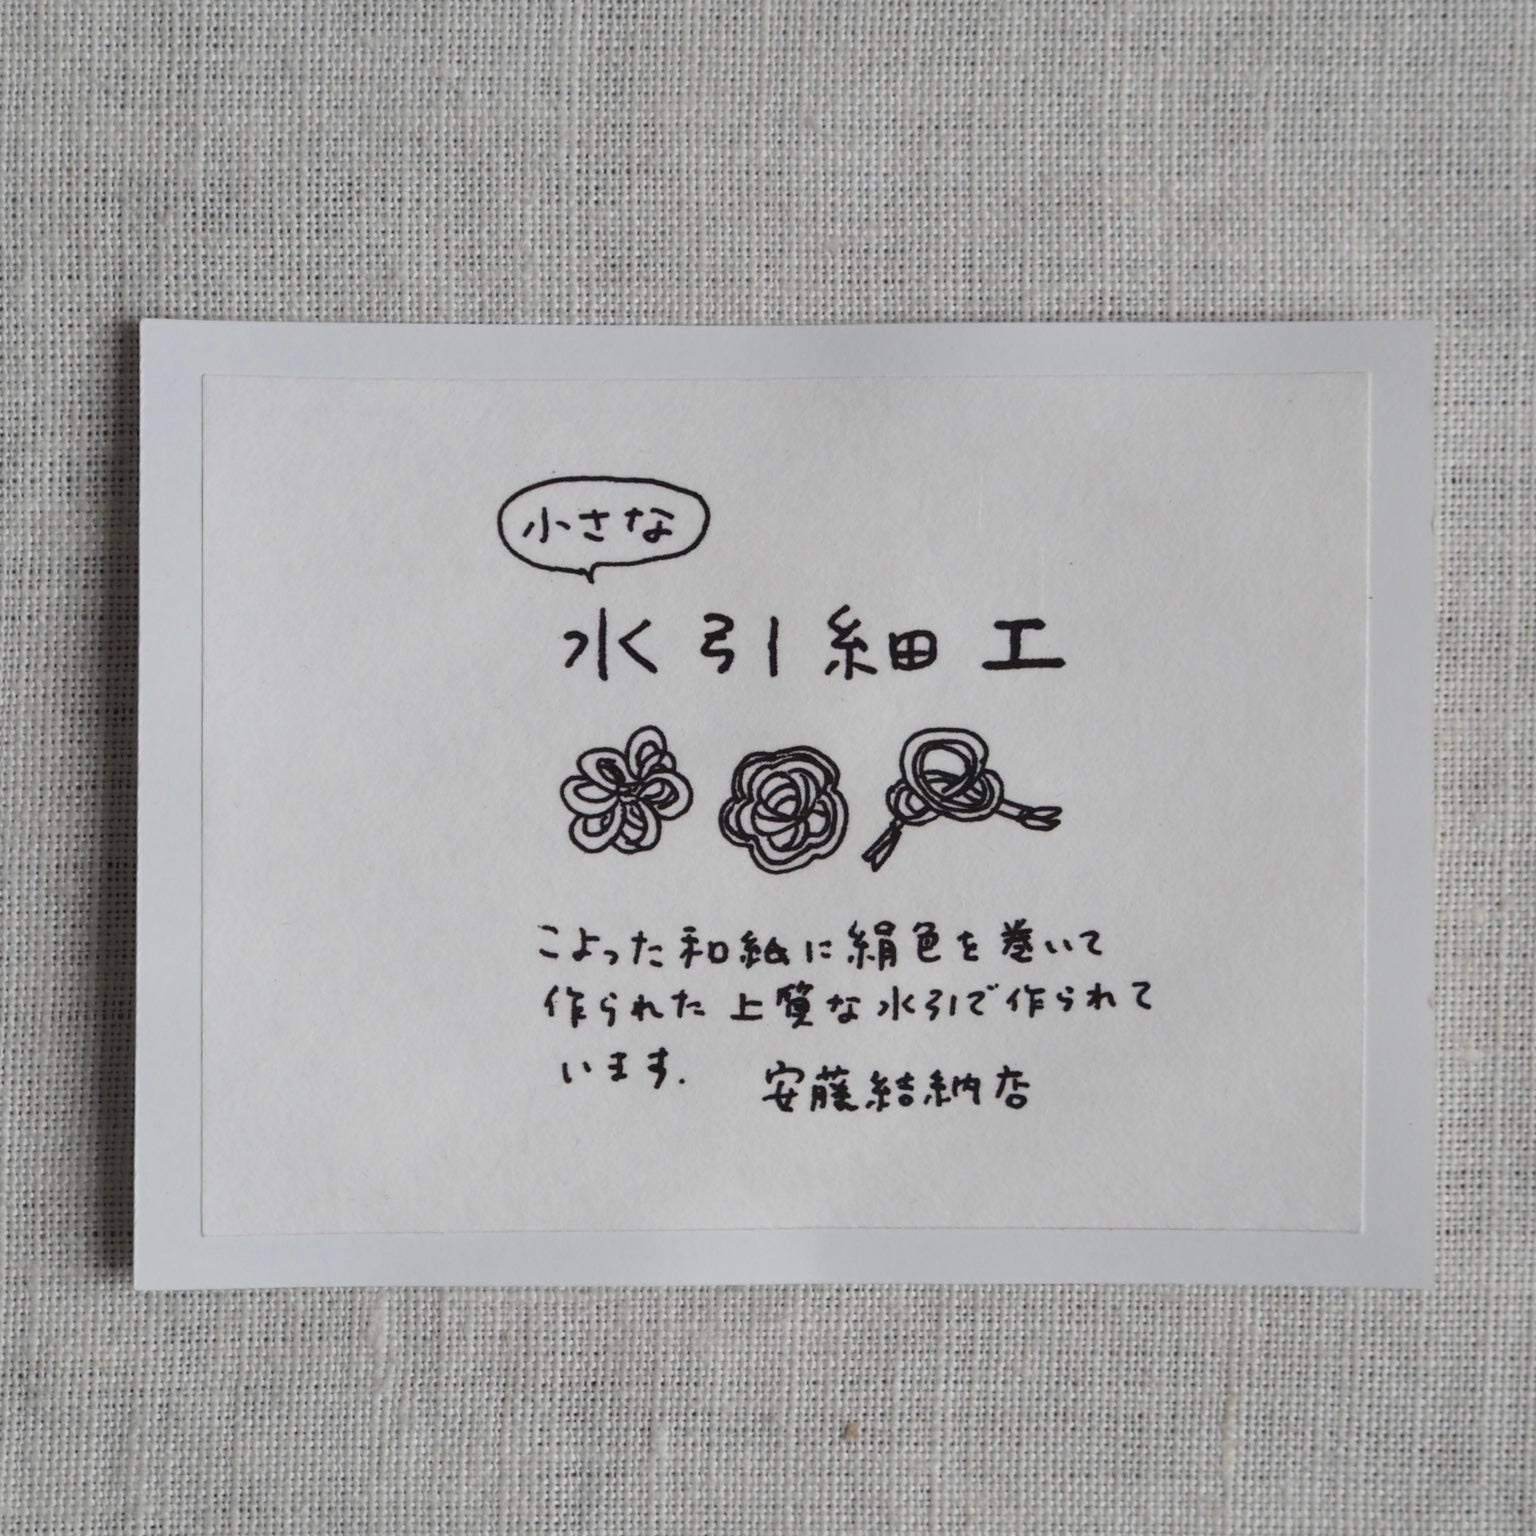 小さな
水引細工
こよった和紙に絹色を巻いて
作られた上質な水引で作られて
います.
安藤結納店